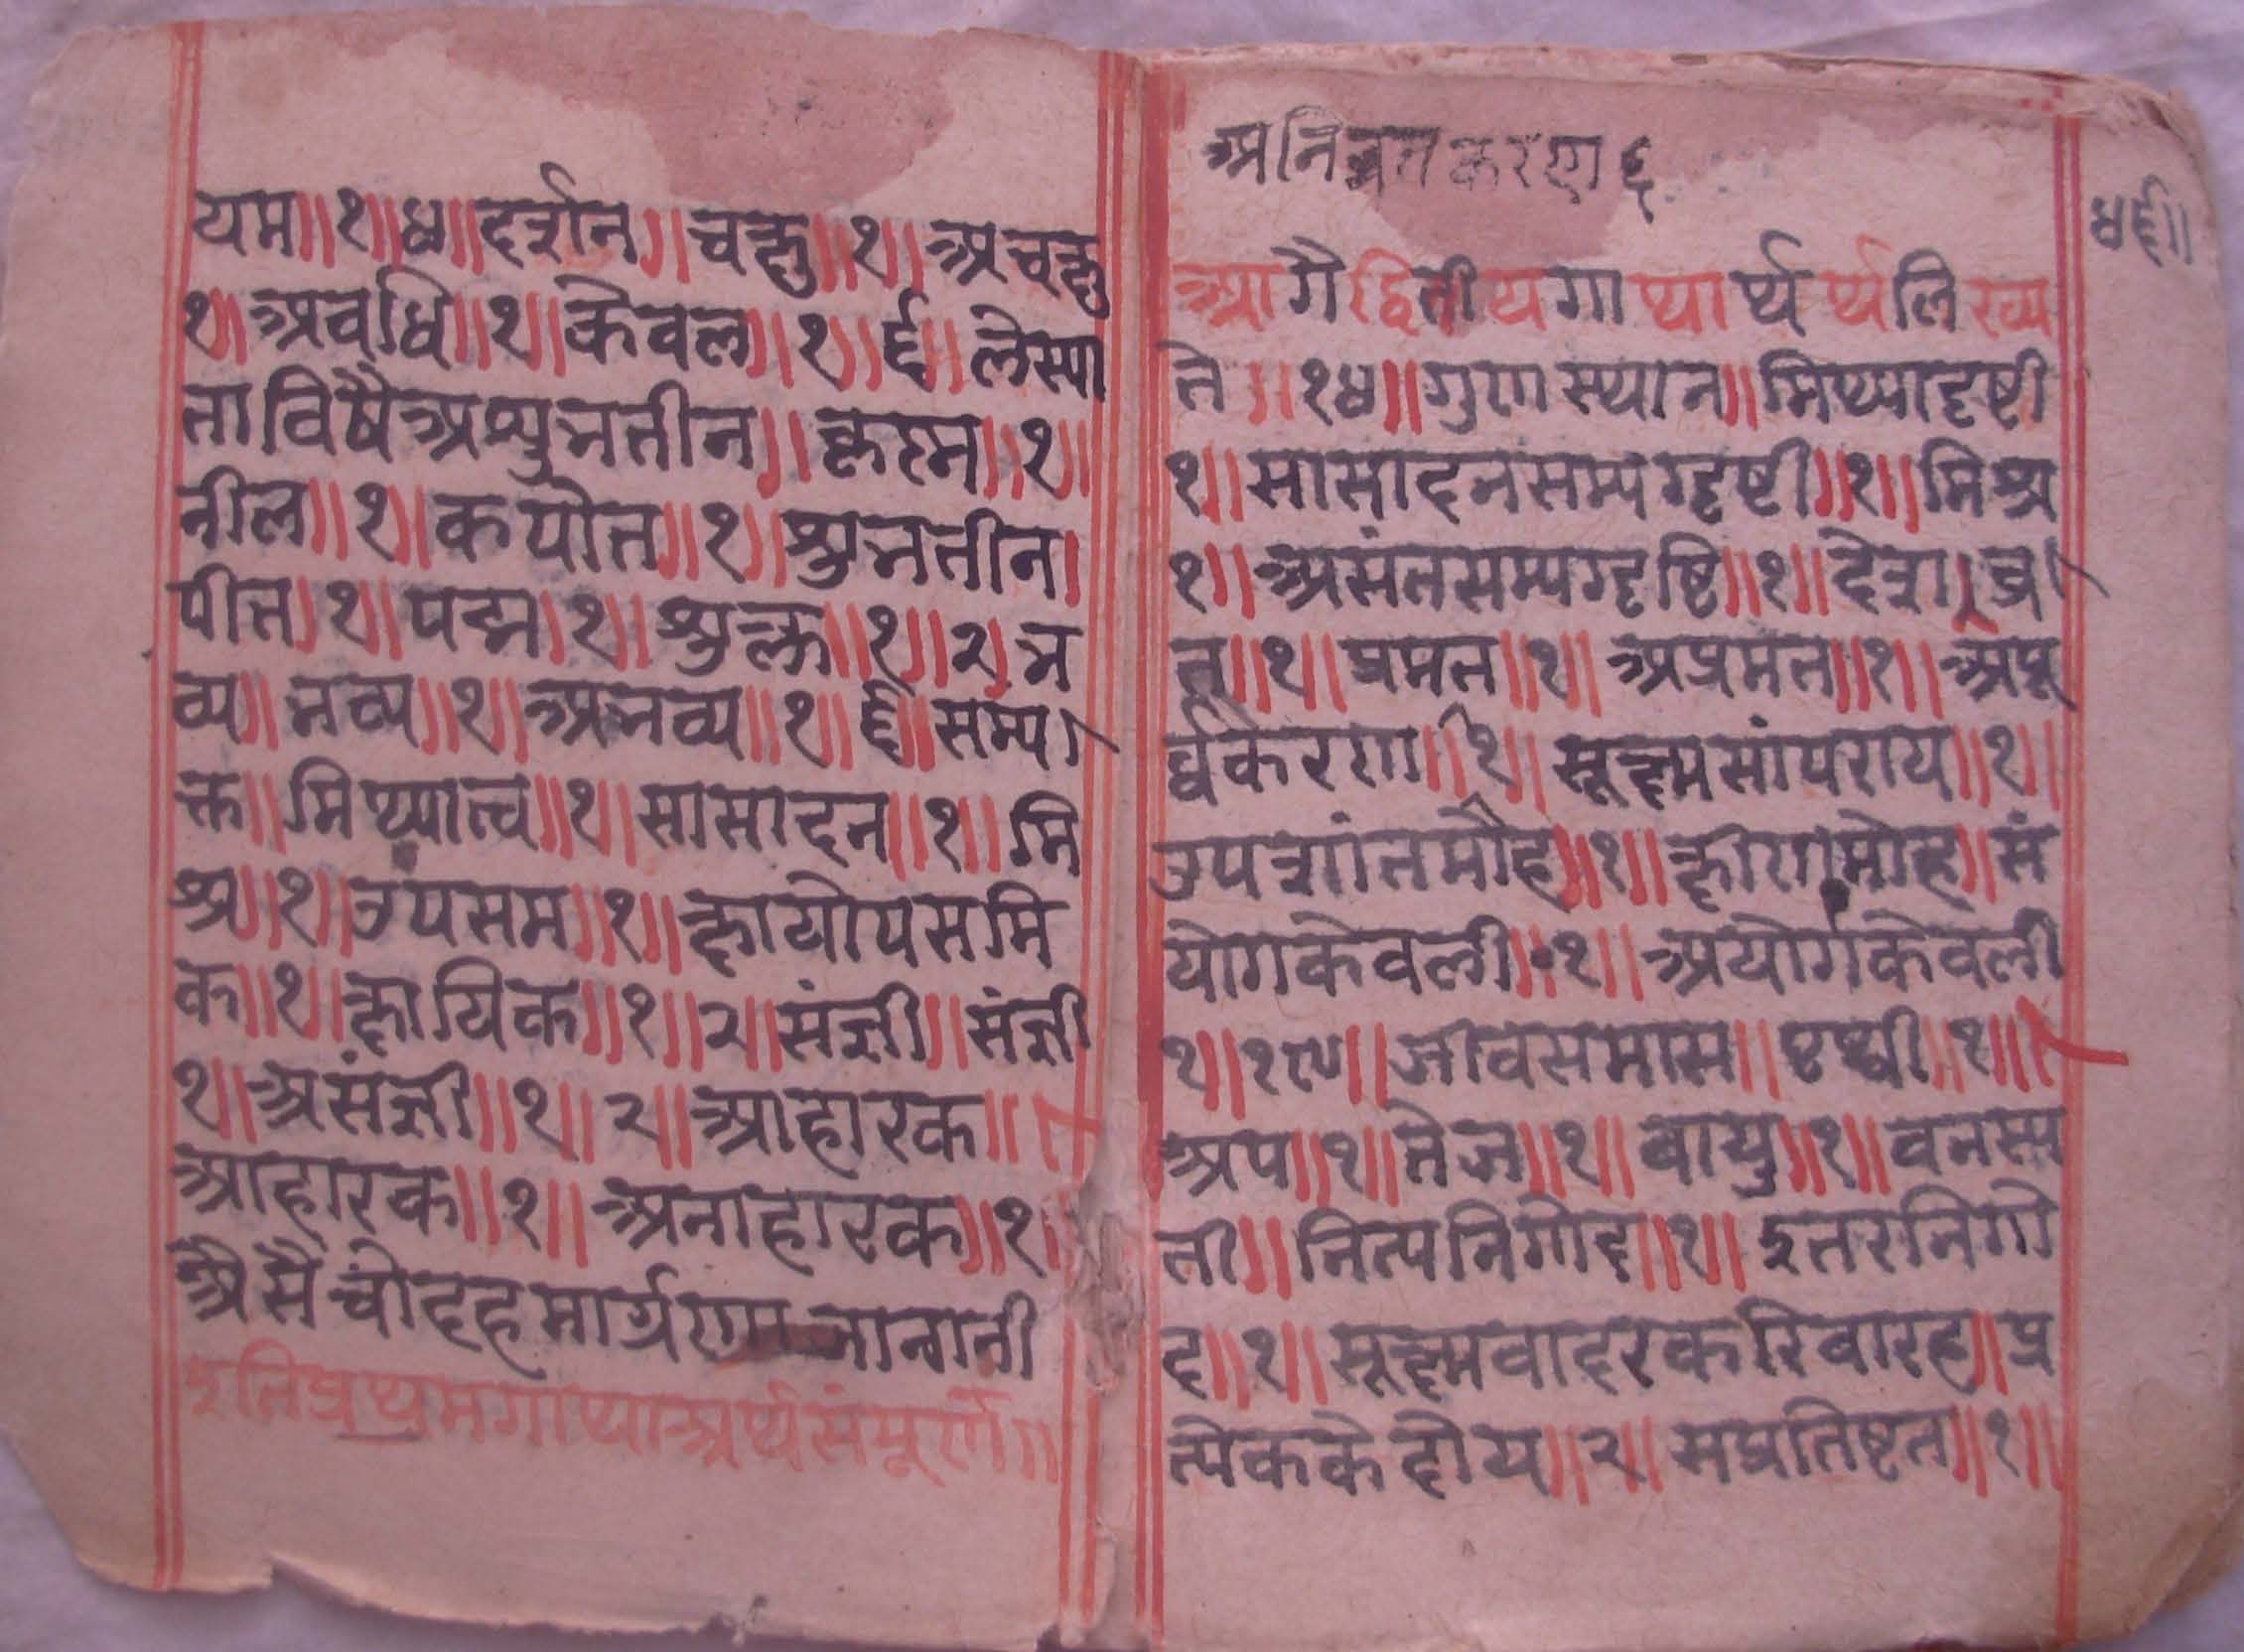 यम॥१॥४॥दर्शन॥चक्षु॥१॥अचक्षु
१॥अवधि॥१॥केवल॥१॥६॥लेस्या
ताविषैअश्युभतीन॥कृष्न॥१॥
नील॥१॥कयोत॥१॥श्युभतीन।
पीत।१॥पद्म।१॥श्युक्ल॥१॥२।भ
व्य॥भव्य॥१॥अभव्य॥१॥६॥सम्य।
क्त॥मिथ्यात्व॥१॥सासादन॥१॥मि
श्र॥१॥उपसम॥१॥क्षायोपसमि
क॥१॥क्षायिक॥१॥२॥संज्ञी॥संज्ञी
१॥असंज्ञी॥१॥२॥आहारक॥
आहारक॥१॥अनाहारक॥१॥
अैसैचोदहमार्गणा जाननी
इतिप्रथमगाथाअर्थसंपूर्ण॥
अनिव्रतकरण
४६॥
आगैद्वितीयगाथार्थर्थलिख्य
ते॥१४॥गुणस्थान॥मिथ्यादृष्टी
१॥सासादनसम्यग्दृष्टी॥१॥मिश्र
१॥असंतसम्यग्दृष्टि॥१॥देश।व्र।
त॥१॥प्रमत॥१॥अप्रमत॥१॥अपू
र्वकरण॥१॥सूक्ष्मसांपराय॥१॥
उपशांतमोह॥१॥क्षीणमोह॥सं
योगकेवली॥१॥अयोगकेवली
१॥१९॥जीवसमास॥पृथ्वी॥१॥
अप॥१॥तेज॥१॥वायु॥१॥वनस्प
ती॥नित्यनिगोद॥१॥इतरनिगो
द॥१॥सूक्ष्मवादरकरिबारह॥प्र
त्येककेदोय॥२॥सप्रतिष्टत॥१॥